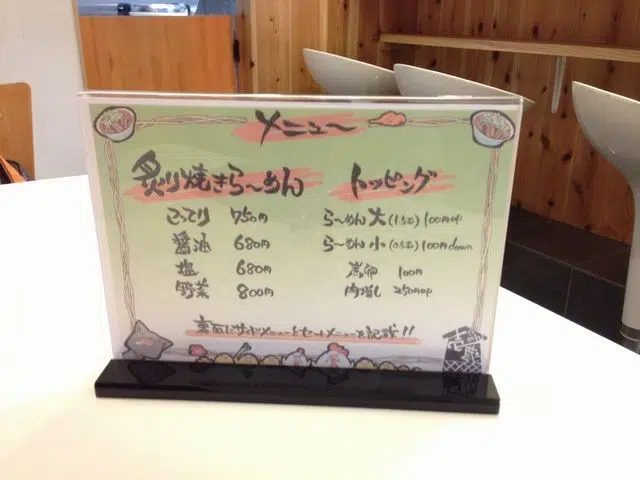 メニュー
炙り焼きら〜めん
こってり 750円
醤油 680円
塩 680円
野菜 800円
トッピング
ら〜めん 大(1.5玉) 100円up
ら〜めん 小(0.5玉) 100円down
煮卵 100円
肉増し 250円up
裏面にサイドメニューとセットメニューを記載!!